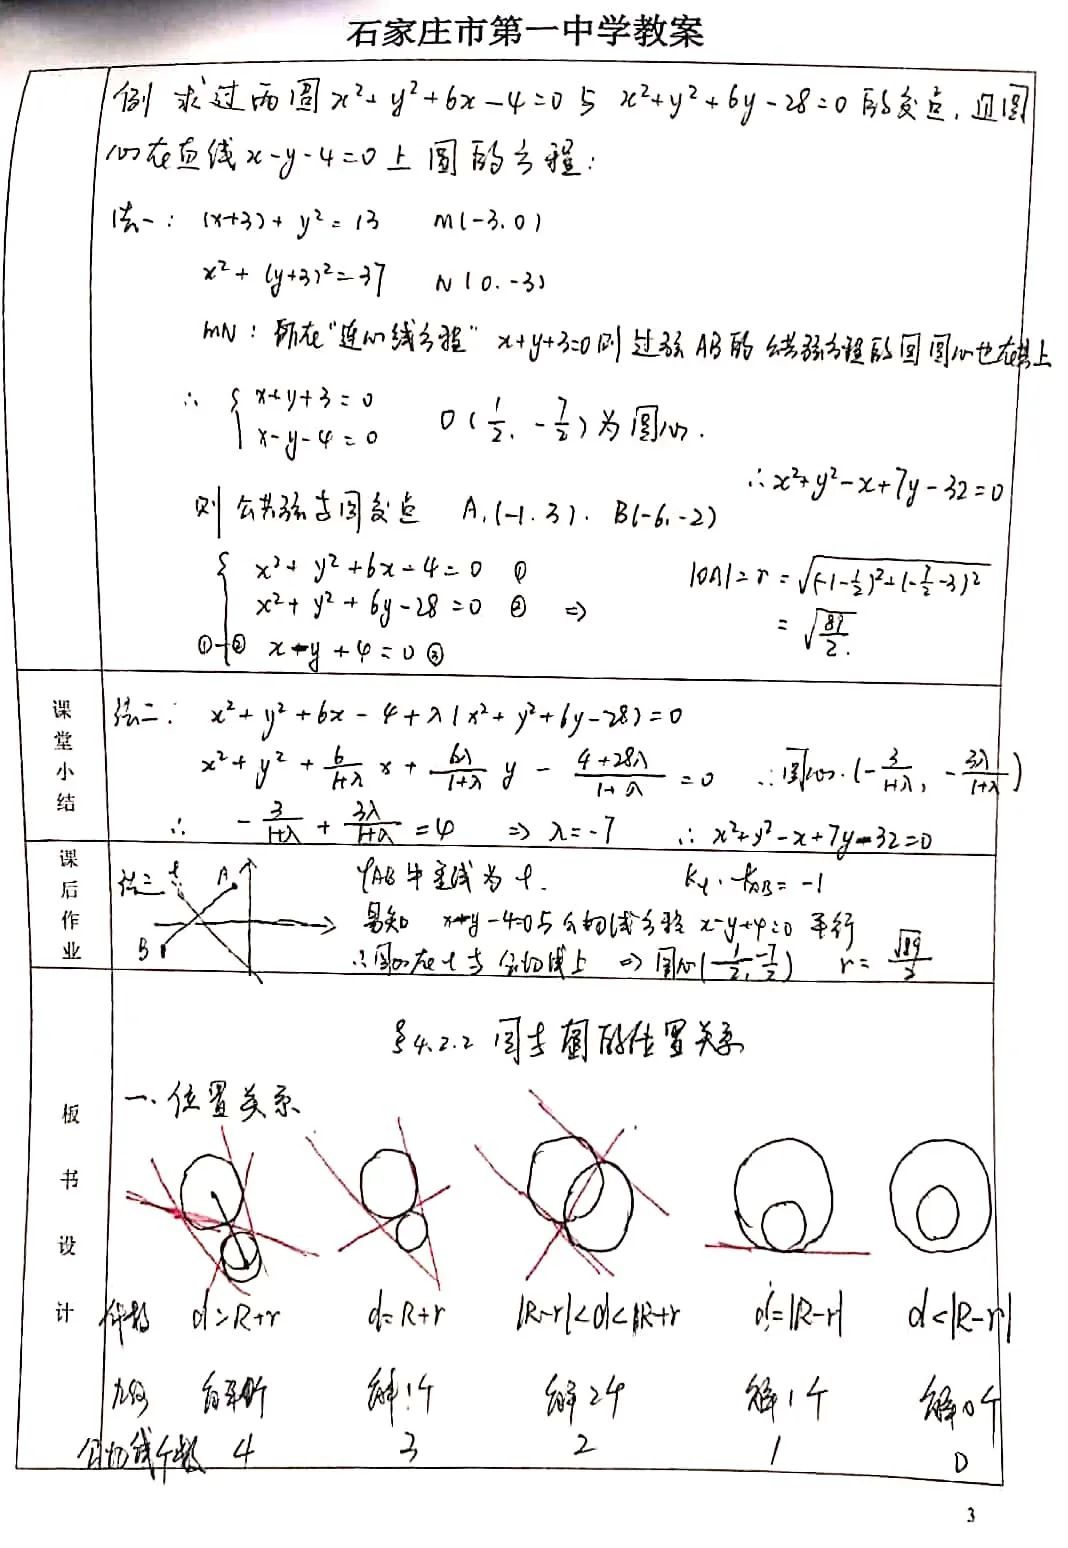 石家庄市第一中学教案
例 求过两圆x²+y²+6x-4=0与 x²+y²+6y-28=0的交点,且圆
心在直线x-y-4=0上圆的方程:
法一: (x+3)+y²=13 M(-3.0)
x²+(y+3)²=37 N(0.-3)
MN:所在"连心线方程" x+y+3=0则过弦AB的公共弦方程的回圆心也在其上
∴ { x+y+3=0
x-y-4=0 O(1/2, -7/2)为圆心.
∴x²+y²-x+7y-32=0
则公共弦与圆交点 A,(-1.3). B(-6,-2)
{ x²+y²+6x-4=0 ① |OA|=r=√((-1-1/2)²+(-7/2-3)²
x²+y²+6y-28=0 ② ⇒ =√(89/2).
①-② x-y+4=0 ③
课堂小结
法二: x²+y²+6x-4+λ(x²+y²+6y-28)=0
x²+y²+6/(1+λ) x+6λ/(1+λ) y-(4+28λ)/(1+λ)=0 ∴圆心.(-3/(1+λ), -3λ/(1+λ))
∴ -3/(1+λ)+3λ/(1+λ)=4 ⇒ λ=-7 ∴x²+y²-x+7y-32=0
课后作业
法三 l A B
AB中垂线为l. K_l·k_AB=-1
易知 x-y-4=0与公切线方程x-y+4=0平行
∴圆心在l与公切线上 ⇒ 圆心(1/2,-7/2) r=√89/2
板书设计
§4.2.2 圆与圆的位置关系
一.位置关系
d>R+r d=R+r |R-r|<d<|R+r d=|R-r| d<|R-r|
几何 解1个 解2个 解1个 解0个
公切线个数 4 3 2 1 0
3